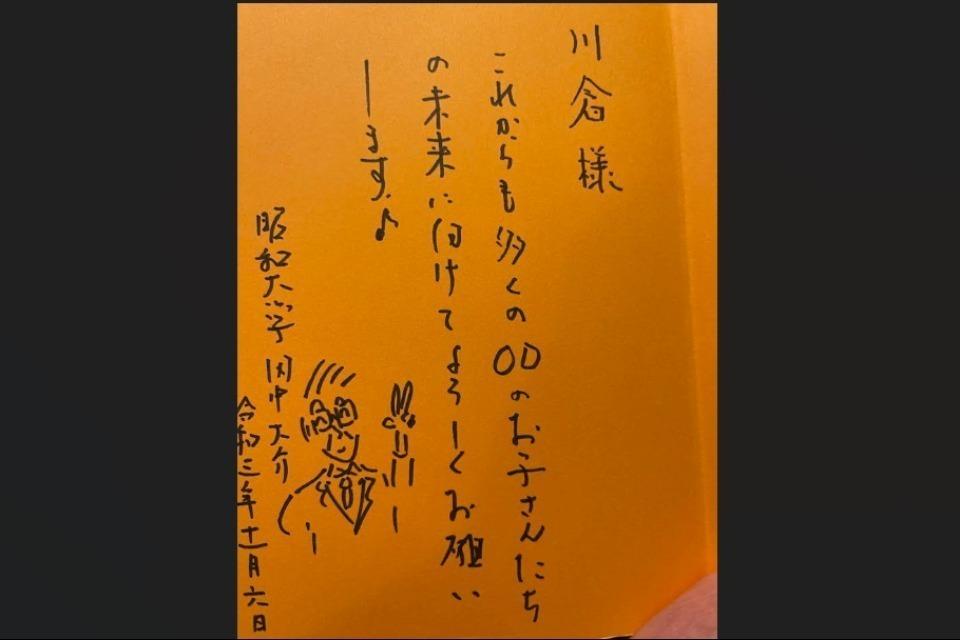 川倉様
これからも多くのODのお子さんたち
の未来に向けてよろしくお願い
します♪
昭和大学 田中大介
令和三年十一月六日